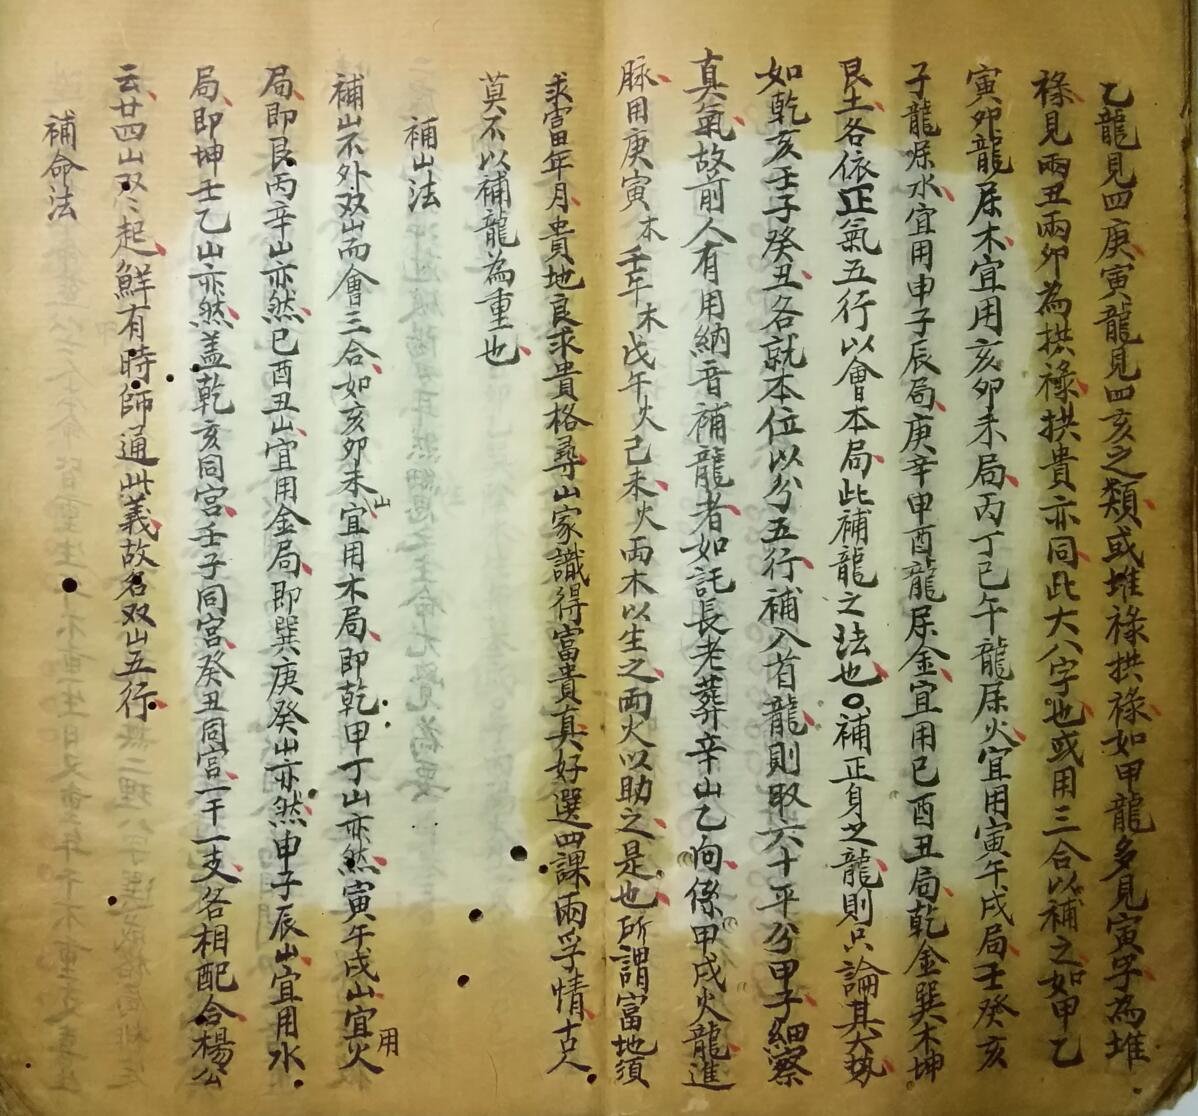 乙龍見四庚寅龍見四亥之類或堆祿拱祿如甲龍多見寅字為堆
祿見兩丑兩卯為拱祿拱貴亦同此大八字也或用三合以補之如甲乙
寅卯龍屬木宜用亥卯未局丙丁巳午龍屬火宜用寅午戌局壬癸亥
子龍屬水宜用申子辰局庚辛申酉龍屬金宜用巳酉丑局乾金巽木坤
艮土各依正氣五行以會本局此補龍之法也○補正身之龍則只論其大勢
如乾亥壬子癸丑各就本位以分五行補入首龍則取六十平分甲子細察
真氣故前人有用納音補龍者如託長老葬辛山乙向係甲戌火龍進
脉用庚寅木壬午木戊午火己未火兩木以生之兩火以助之是也所謂富地須
求富年月貴地良求貴格尋山家識得富貴真好選四課兩孚情古人
莫不以補龍為重也
補山法
補山不外双山而會三合如亥卯未山宜用木局即乾甲丁山亦然寅午戌山宜用火
局即艮丙辛山亦然巳酉丑山宜用金局即巽庚癸山亦然申子辰山宜用水
局即坤壬乙山亦然盖乾亥同宮壬子同宮癸丑同宮一干一支各相配合楊公
云廿四山双双起鮮有時師通此義故名双山五行
補命法